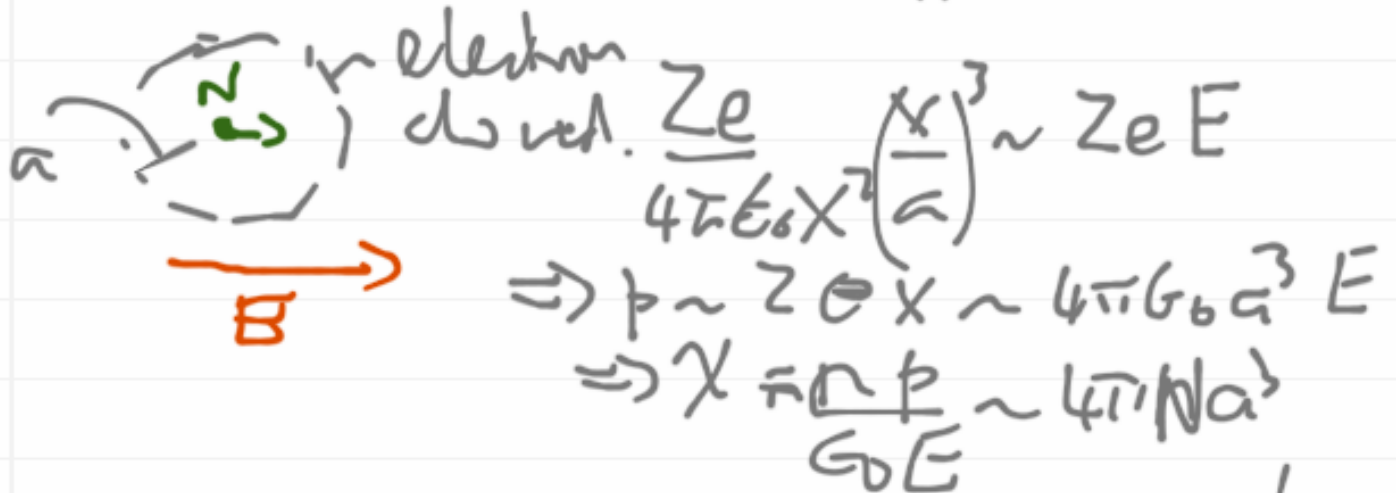 electron
cloud.
N
a
E
Ze / 4πε₀x² (x/a)³ ~ ZeE
⇒ p ~ Zex ~ 4πε₀a³E
⇒ χ = np / ε₀E ~ 4πNa³